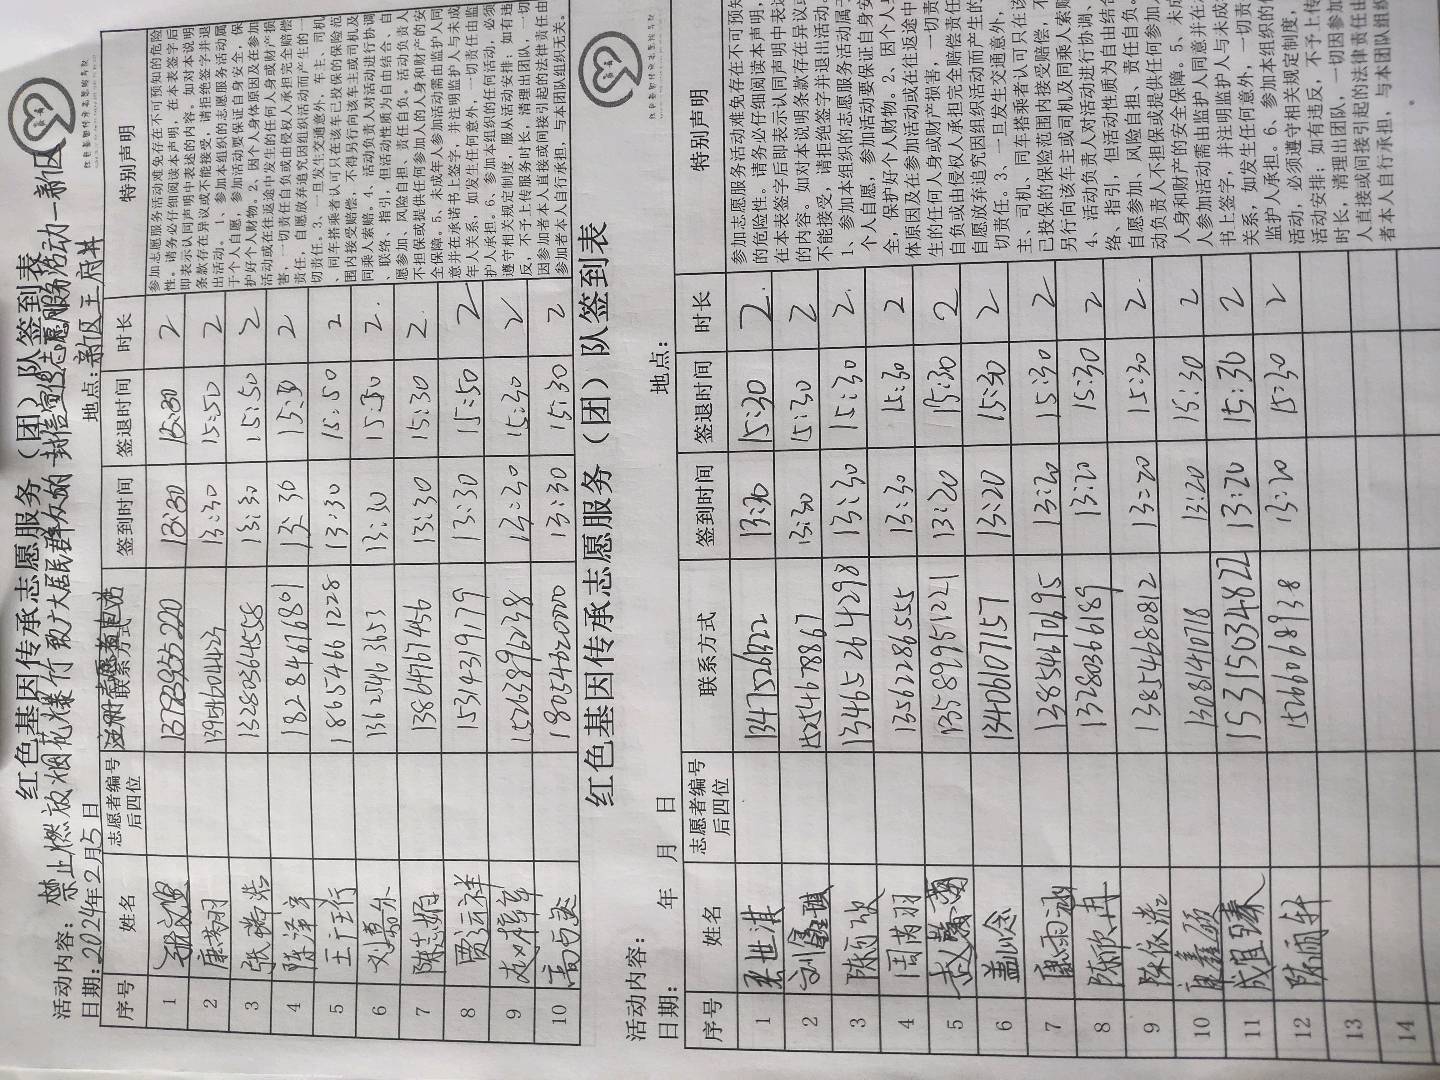 红色基因传承志愿服务（团）队签到表
活动内容：禁止燃放烟花爆竹致广大居民群众的一封信宣传志愿服务活动—新区
日期：2024年2月5日 地点：新区王府井
序号 姓名 志愿者编号后四位 联系方式 签到时间 签退时间 时长 特别声明
1 2
2 康芮羽 13:30 15:50 2
3 13280364558 13:30 15:50 2
4 18284676801 13:30 2
5 王于行 18654661228 13:30 15:50 2
6 刘慕尔 13625463653 13:30 15:30 2.
7 陈志妍 13864767456 13:30 15:30 2.
8 贾云祥 15314319179 13:30 15:50 2
9 15263896238 13:30 15:30 2
10 13:30 15:30 2
参加志愿服务活动难免存在不可预知的危险
性。请务必仔细阅读本声明，在本表签字后
即表示认同声明中表述的内容。如对本说明
条款存在异议或不能接受，请拒绝签字并退
出活动。1、参加本组织的志愿服务活动属
于个人自愿，参加活动要保证自身安全，保
护好个人财物。2、因个人身体原因及在参加
活动或在往返途中发生的任何人身或财产损
害，一切责任自负或由侵权人承担完全赔偿
责任，自愿放弃追究因组织活动而产生的一
切责任。3、一旦发生交通意外，车主、司机
、同车搭乘者认可只在该车已投保的保险范
围内接受赔偿，不得另行向该车主或司机及
同乘人索赔。4、活动负责人对活动进行协调
、联络、指引，但活动性质为自由结合、自
愿参加、风险自担、责任自负。活动负责人
不担保或提供任何参加人的人身和财产的安
全保障。5、未成年人参加活动需由监护人同
意并在承诺书上签字，并注明监护人与未成
年人关系，如发生任何意外，一切责任由监
护人承担。6、参加本组织的任何活动，必须
遵守相关规定制度，服从活动安排；如有违
反，不予上传服务时长，清理出团队，一切
因参加者本人直接或间接引起的法律责任由
参加者本人自行承担，与本团队组织无关。
红色基因传承志愿服务（团）队签到表
活动内容：
日期： 年 月 日 地点：
序号 姓名 志愿者编号后四位 联系方式 签到时间 签退时间 时长 特别声明
1 13475261322 13:30 15:30 2.
2 15254678867 13:30 15:30 2
3 陈雨欣 13465264298 13:30 15:30 2.
4 周芮羽 13562286555 13:30 15:30 2
5 13589951221 13:20 15:30 2
6 盖以念 13406107157 13:20 15:30 2
7 康雨涵 13854670695 13:20 15:30 2
8 陈欣冉 13280366189 13:20 15:30 2
9 陈依诺 13854680812 13:20 15:30 2.
10 康鑫硕 13081410718 13:20 15:30 2
11 成宜臻 15315034822 13:20 15:30 2
12 陈雨轩 15266068938 13:20 15:30 2
13
14
参加志愿服务活动难免存在不可预知
的危险性。请务必仔细阅读本声明，
在本表签字后即表示认同声明中表述
的内容。如对本说明条款存在异议或
不能接受，请拒绝签字并退出活动。
1、参加本组织的志愿服务活动属于
个人自愿，参加活动要保证自身安
全，保护好个人财物。2、因个人身
体原因及在参加活动或在往返途中
生的任何人身或财产损害，一切责
自负或由侵权人承担完全赔偿责任
自愿放弃追究因组织活动而产生的
切责任。3、一旦发生交通意外，
主、司机、同车搭乘者认可只在该
已投保的保险范围内接受赔偿，不
另行向该车主或司机及同乘人索赔
4、活动负责人对活动进行协调、
络、指引，但活动性质为自由结合
自愿参加、风险自担、责任自负。
动负责人不担保或提供任何参加人
人身和财产的安全保障。5、未成
人参加活动需由监护人同意并在承
书上签字，并注明监护人与未成年
关系，如发生任何意外，一切责
监护人承担。6、参加本组织的任
活动，必须遵守相关规定制度，
活动安排；如有违反，不予上传
时长，清理出团队，一切因参加
人直接或间接引起的法律责任由
者本人自行承担，与本团队组织
。